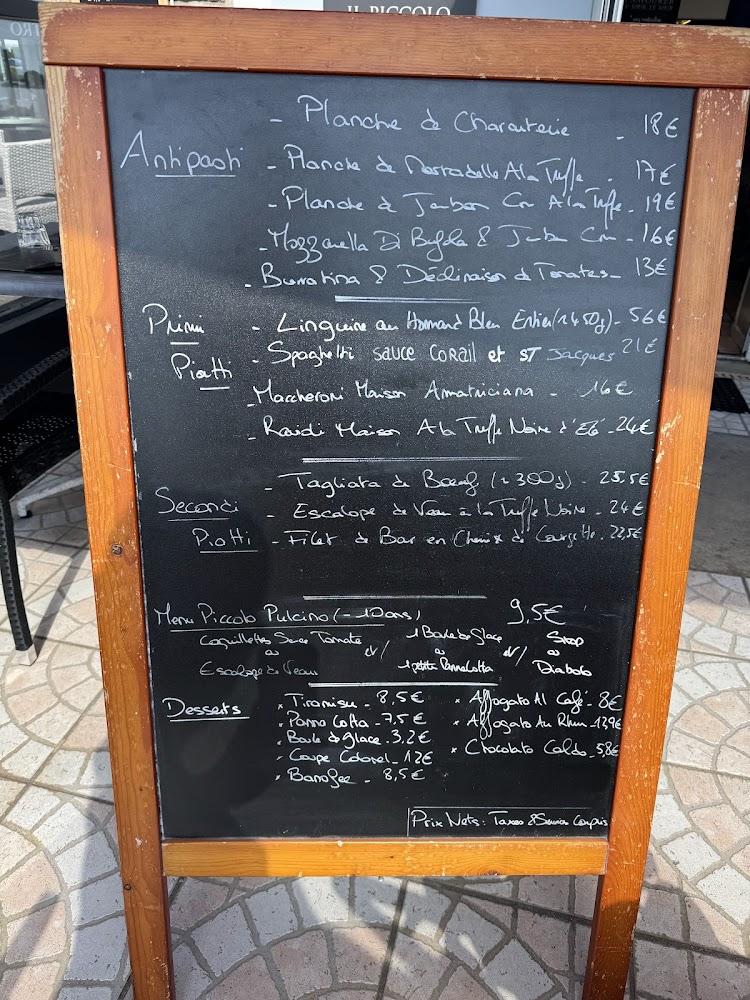 IL PICCOLO
Antipasti
- Planche de Charcuterie - 18€
- Planche de Mortadelle A la Truffe - 17€
- Planche de Jambon Cru A la Truffe - 19€
- Mozzarella Di Bufala & Jambon Cru - 16€
- Burratina & Déclinaison de Tomates - 13€
Primi Piatti
- Linguine au Homard Bleu Entier (~450g) - 56€
- Spaghetti sauce corail et ST Jacques 21€
- Maccheroni Maison Amatriciana - 16€
- Ravioli Maison A la Truffe Noire d'Eté - 24€
Secondi Piatti
- Tagliata de Bœuf (~300g) - 25,5€
- Escalope de Veau à la Truffe Noire - 24€
- Filet de Bar en Chemise de Courgette - 22,5€
Menu Piccolo Pulcino (-10ans) 9,5€
Coquillettes Sauce Tomate
ou
Escalope de Veau
et/
1 Boule de Glace
ou
1 petite Panna Cotta
et/
Sirop
ou
Diabolo
Desserts
× Tiramisu - 8,5€
× Panna Cotta - 7,5€
× Boule de Glace - 3,2€
- Coupe Colonel - 12€
× Banofee - 8,5€
× Affogato Al Café - 8€
× Affogato Au Rhum - 13,9€
× Chocolato Caldo - 5,8€
Prix Nets : Taxes & Service Compris